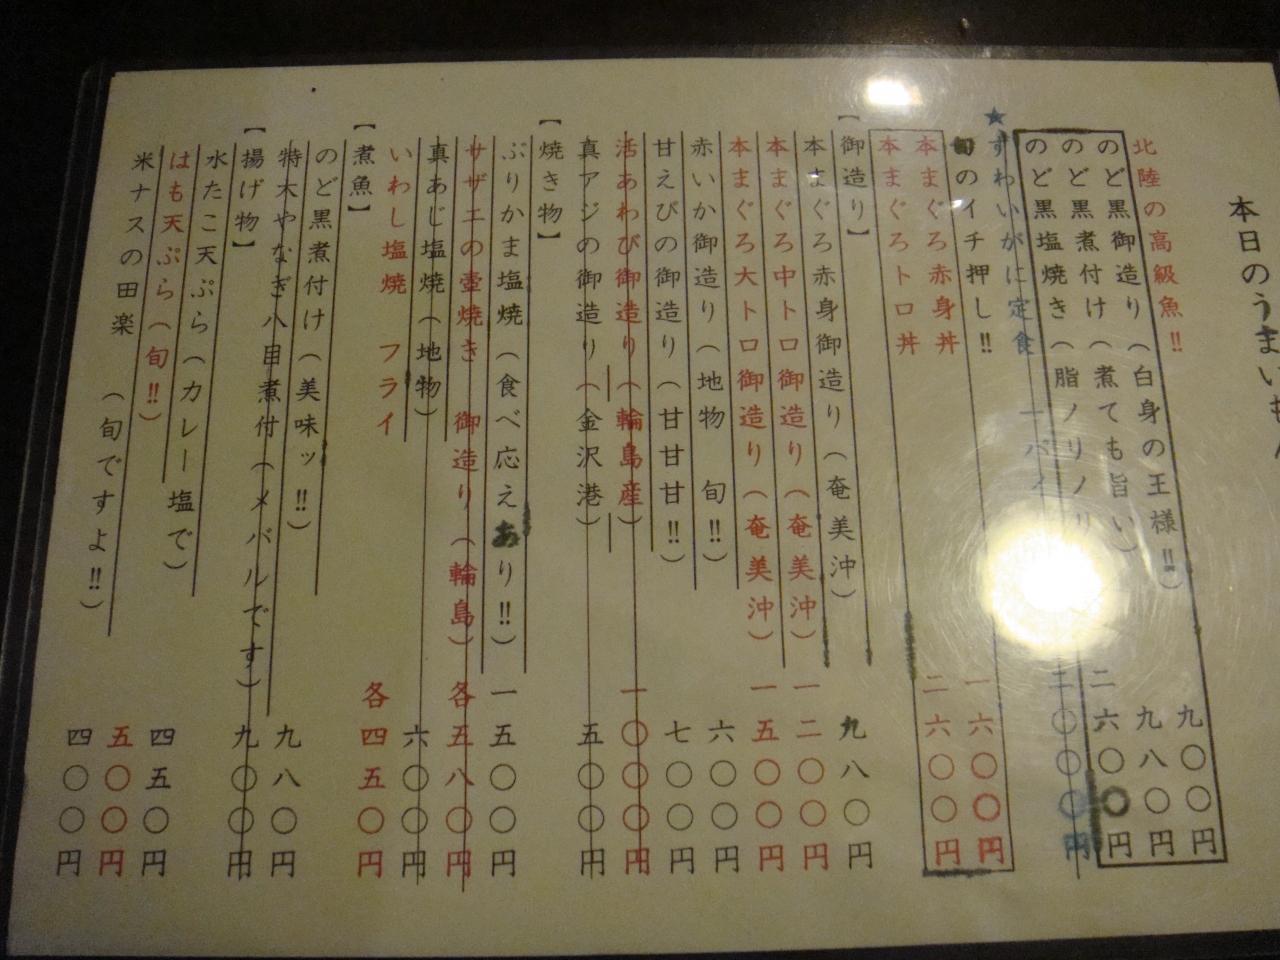 本日のうまいもん
北陸の高級魚!!
のど黒御造り(白身の王様!!) 九〇〇円
のど黒煮付け(煮ても旨い) 九八〇円
のど黒塩焼き(脂ノリノリ 二六〇〇円
★ずわいがに定食 一パイ 二〇〇〇円
旬のイチ押し!!
本まぐろ赤身丼 一六〇〇円
本まぐろトロ丼 二六〇〇円
【御造り】
本まぐろ赤身御造り(奄美沖) 九八〇円
本まぐろ中トロ御造り(奄美沖) 一二〇〇円
本まぐろ大トロ御造り(奄美沖) 一五〇〇円
赤いか御造り(地物 旬!!) 六〇〇円
甘えびの御造り(甘甘甘!!) 七〇〇円
活あわび御造り(輪島産) 一〇〇〇円
真アジの御造り(金沢港) 五〇〇円
【焼き物】
ぶりかま塩焼(食べ応えあり!!) 一五〇〇円
サザエの壷焼き 御造り(輪島) 各五八〇円
真あじ塩焼(地物) 六〇〇円
いわし塩焼 フライ 各四五〇円
【煮魚】
のど黒煮付け(美味ッ!!) 九八〇円
特大やなぎ八目煮付(メバルです) 九〇〇円
【揚げ物】
水たこ天ぷら(カレー塩で) 四五〇円
はも天ぷら(旬!!) 五〇〇円
米ナスの田楽 (旬ですよ!!) 四〇〇円